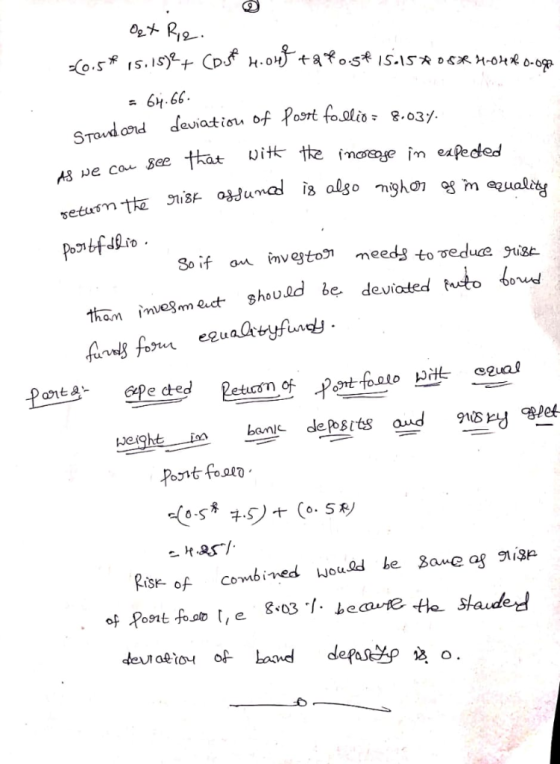 ②
O₂ x R₁₂.
=(0.5* 15.15)² + (0.5* 4.04)² + 2*0.5* 15.15 * 0.5* 4.04 *
= 64.66.
Standard deviation of Portfollio = 8.03%.
As we can see that with the increage in expected
return the risk assumed is also nigher as in equality
Portfollio.
So if an investor needs to reduce risk
than invesment should be deviated into bond
funds form equalityfunds.
Part 2:- Expected Return of Portfollo with equal
weight in bank deposits and risky asset
Portfollo.
=(0.5* 7.5) + (0.5*)
= 4.25%.
Risk of combined would be same as risk
of Portfollo i,e 8.03%. because the standerd
deviation of band is 0.